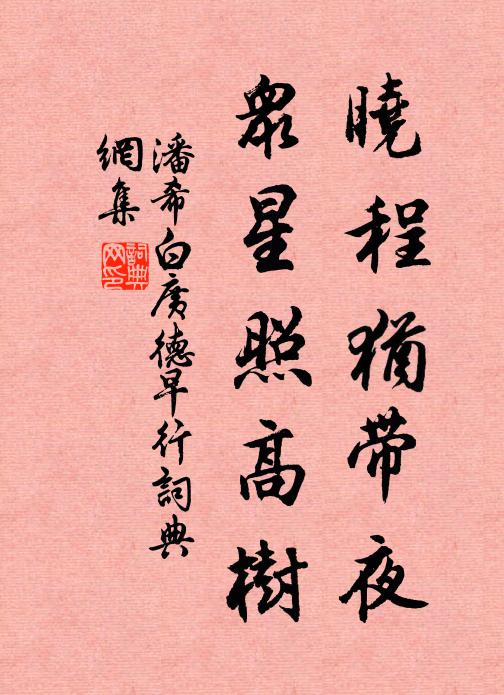 曉程猶带夜
衆星照高樹
潘希白廣德早行詞典
網集
詞典
网印